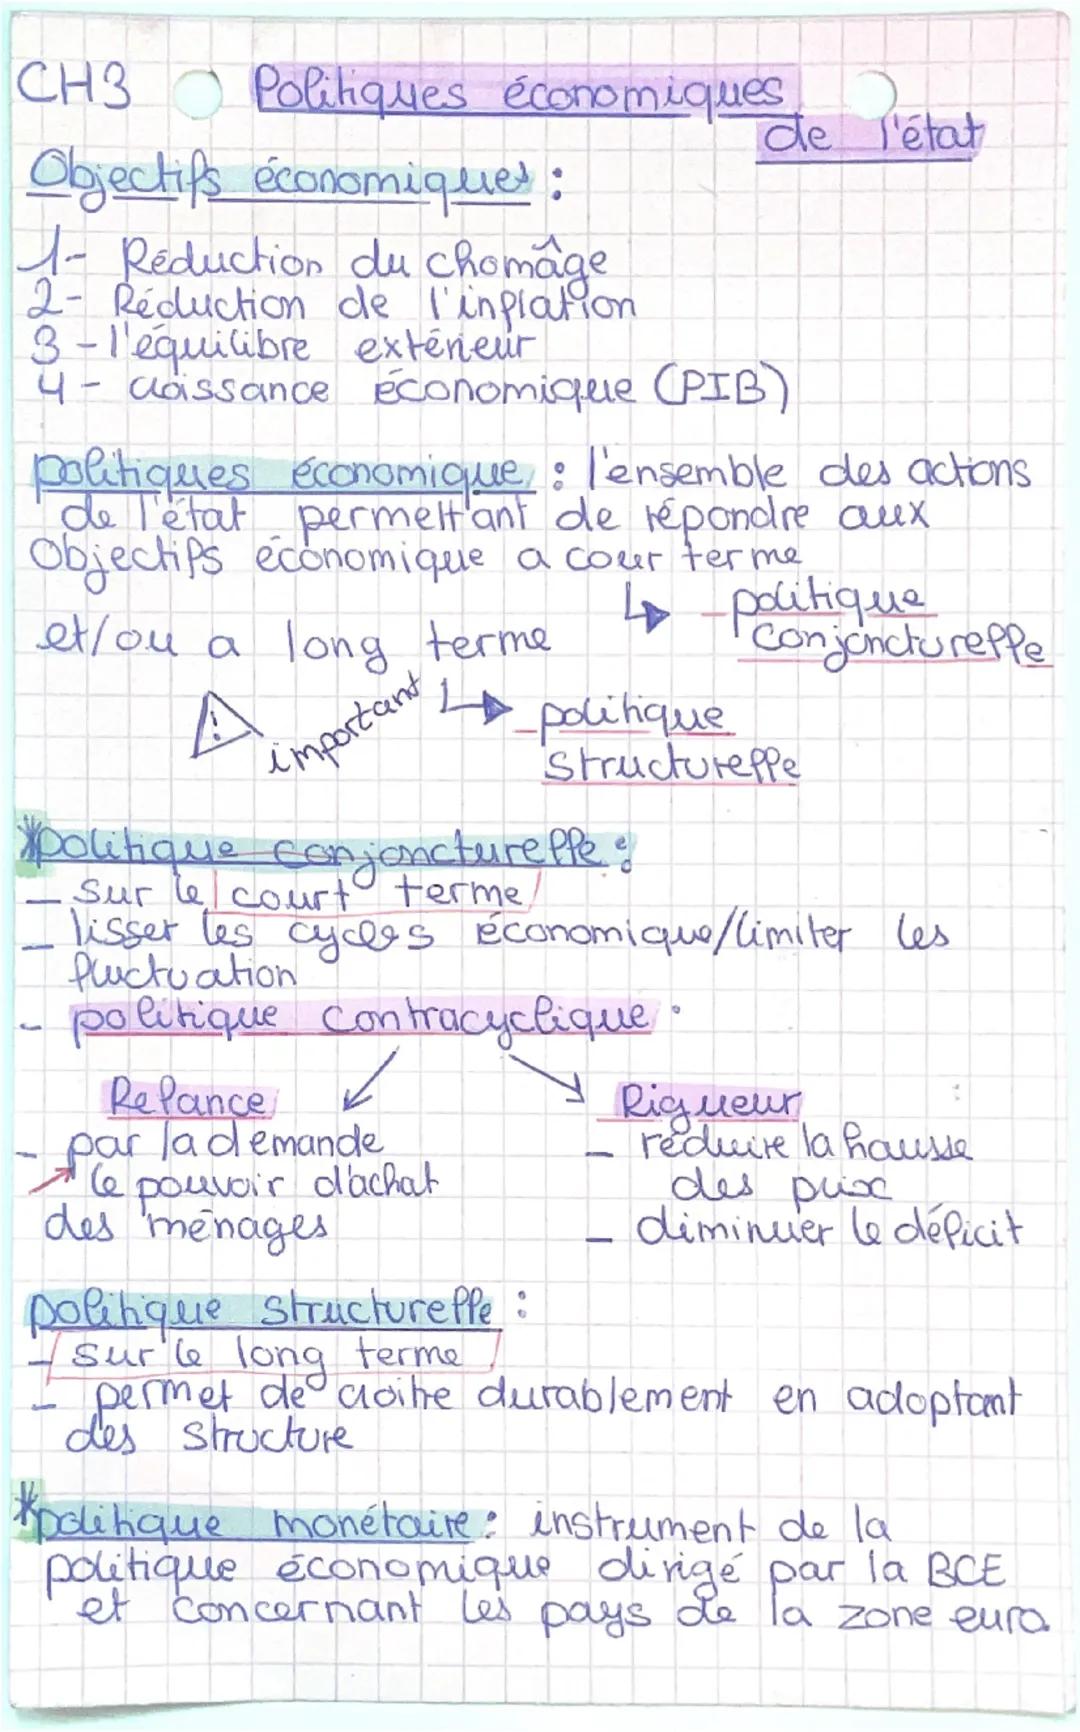 CH3 Politiques économiques
de l'état
Objectifs économiques :
1- Réduction du chomâge
2- Réduction de l'inflation
3 - l'équilibre extérieur
4 - croissance économique (PIB)
politiques économique : l'ensemble des actions
de l'état permett'ant de répondre aux
Objectifs économique a cour terme
↳ politique
conjoncturelle
et/ou a long terme
⚠ important ↳ politique
structurelle
*politique conjoncturelle :
- sur le court terme
- lisser les cycles économique/limiter les
fluctuation
- politique contracyclique :
Relance
- par la demande
↗ le pouvoir d'achat
des ménages
Rigueur
- réduire la hausse
des prix
- diminuer le déficit
politique structurelle :
- sur le long terme
- permet de croitre durablement en adoptant
des structure
*politique monétaire : instrument de la
politique économique dirigé par la BCE
et concernant les pays de la zone euro.